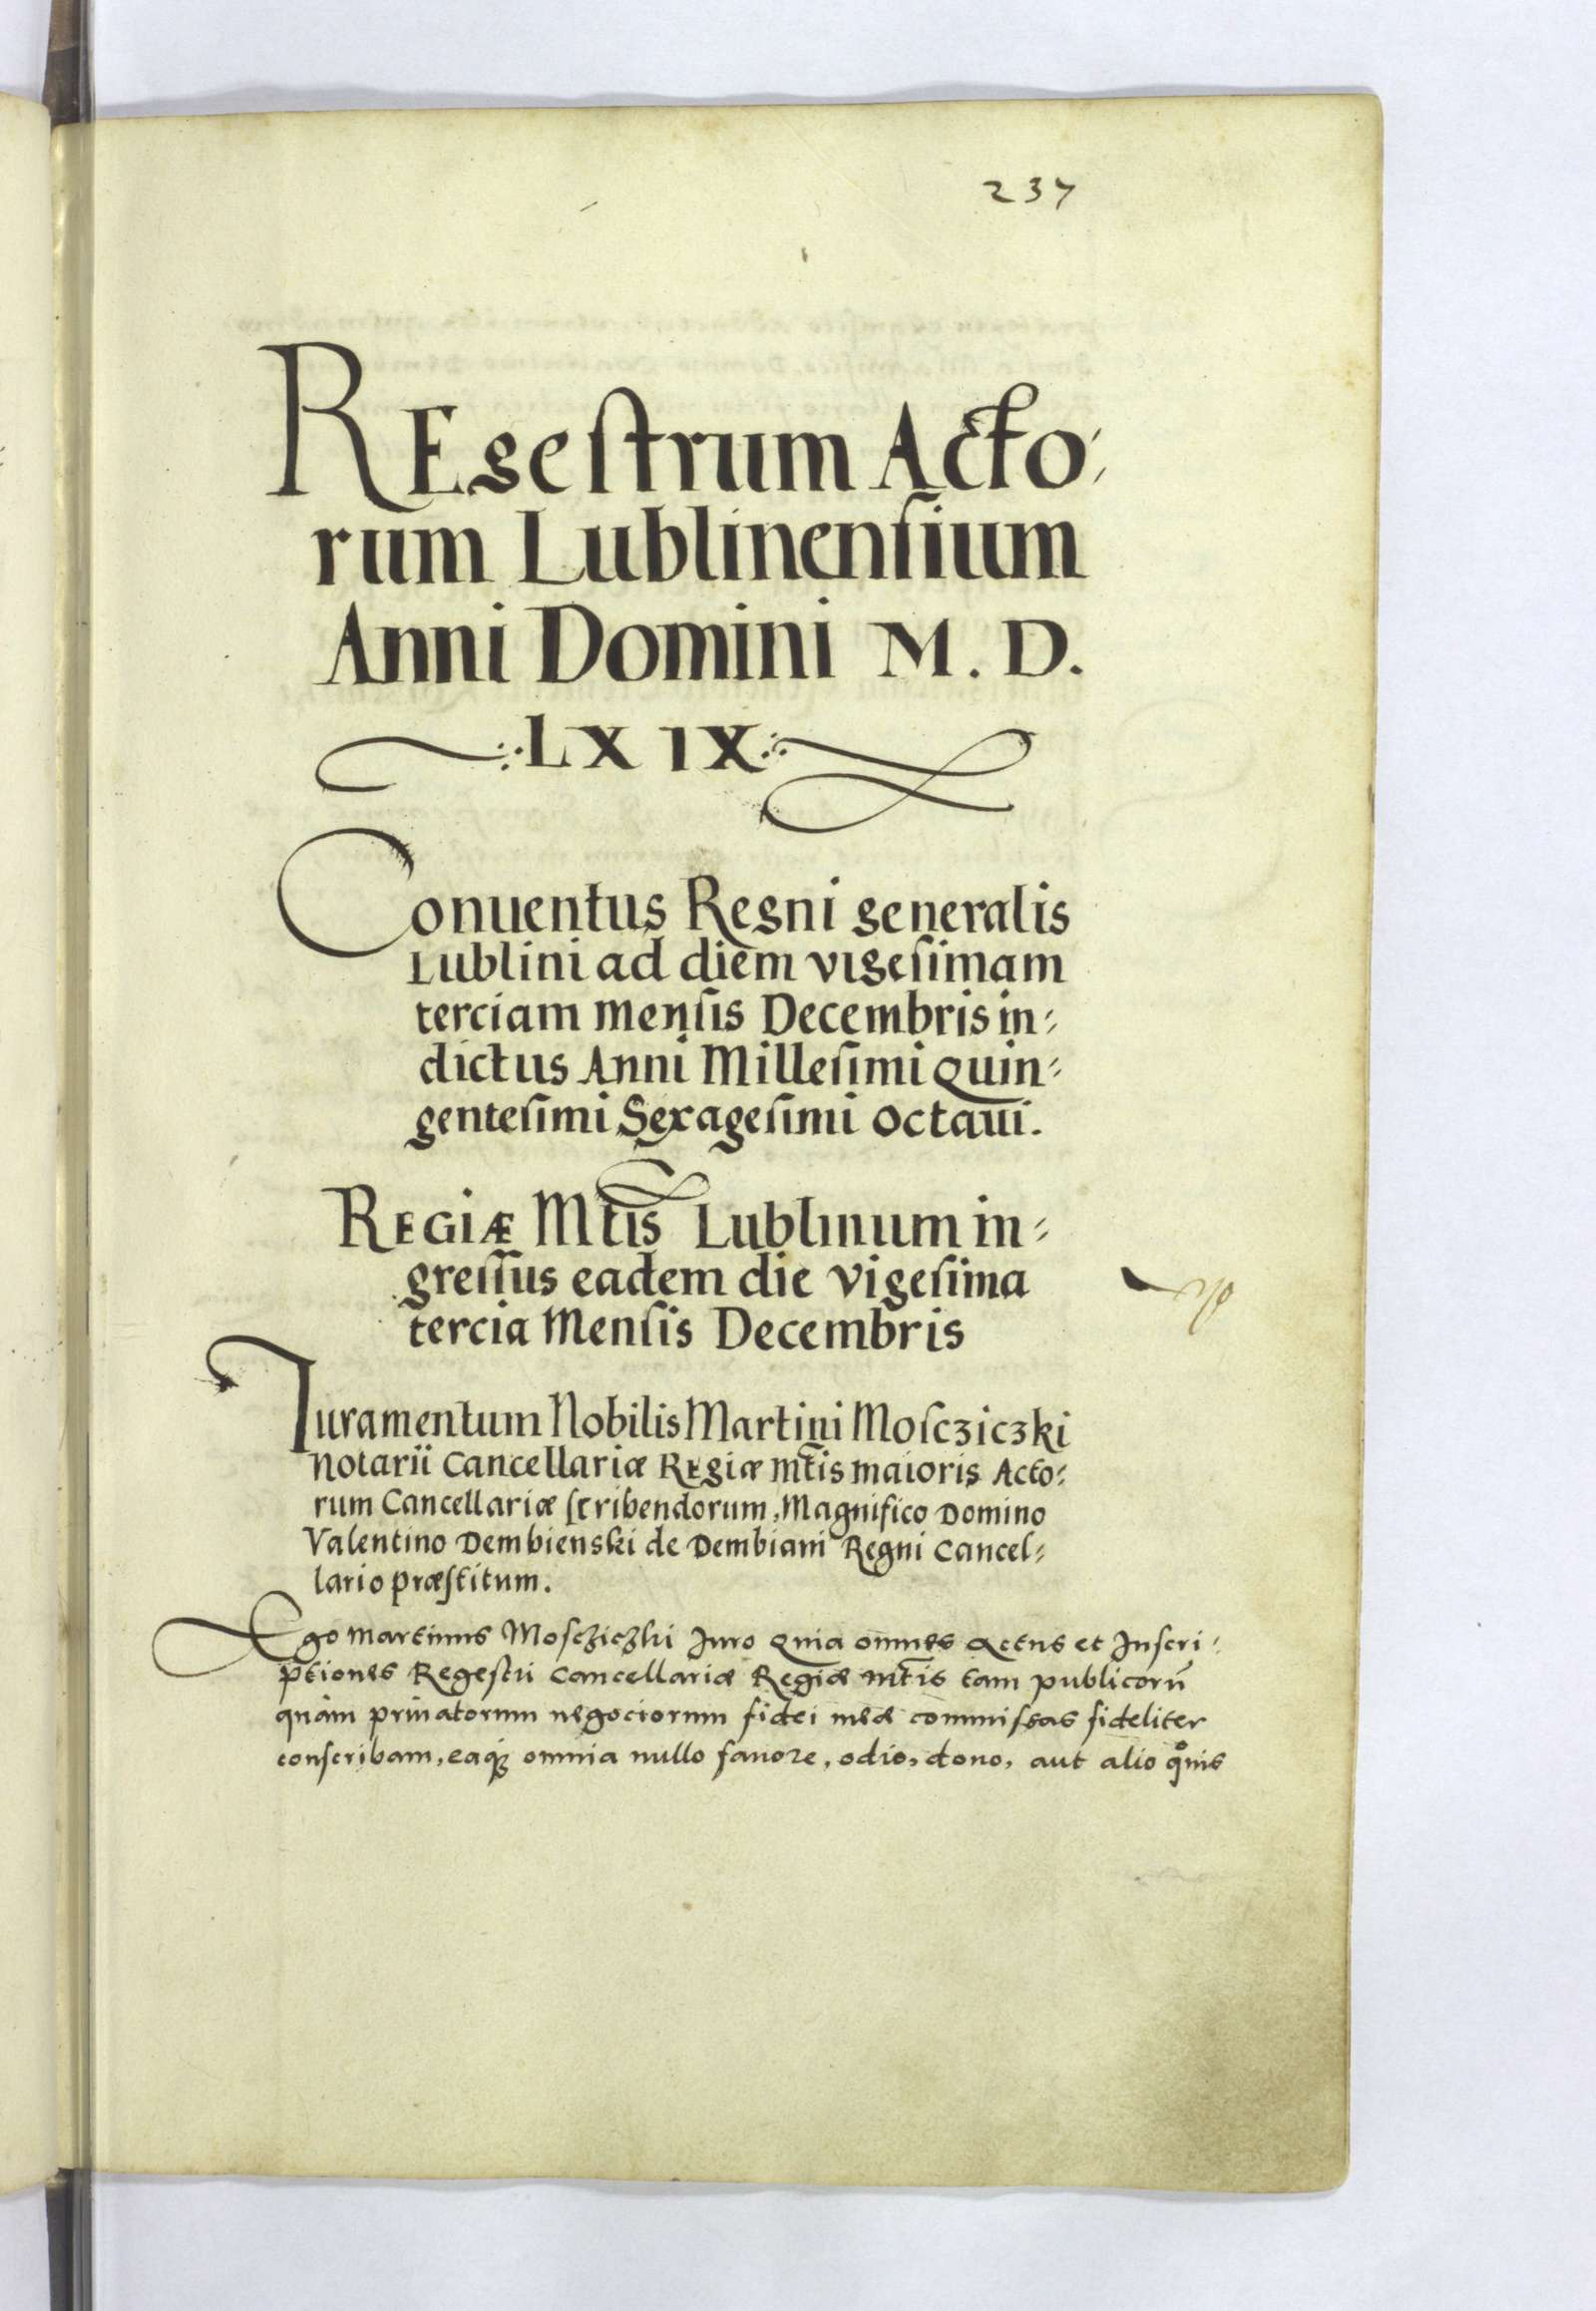 237
REgeſtrum Acto⸗
rum Lublinenſium
Anni Domini M. D.
LX IX
Conuentus Regni generalis
Lublini ad diem vigeſimam
terciam menſis Decembris in⸗
dictus Anni Milleſimi Quin⸗
genteſimi Sexageſimi octaui.
REGIÆ Mtis Lublinum in⸗
greſſus eadem die vigeſima
tercia Menſis Decembris
Iuramentum Nobilis Martini Moſcziczki
Notarii Cancellariæ REgiæ mtis maioris Acto⸗
rum Cancellariæ ſcribendorum, Magnifico Domino
Valentino Dembienski de Dembiani Regni Cancel⸗
lario præſtitum.
Ego Martinus Moſcziczki Iuro Quia omnes Actus et Inſcri⸗
ptiones Regeſtri Cancellariæ Regiæ mtis tam publicorū
quàm priuatorum negociorum fidei meæ commiſsas fideliter
conſcribam, eaqꝫ omnia nullo fauore, odio, dono, aut alio qͦuis